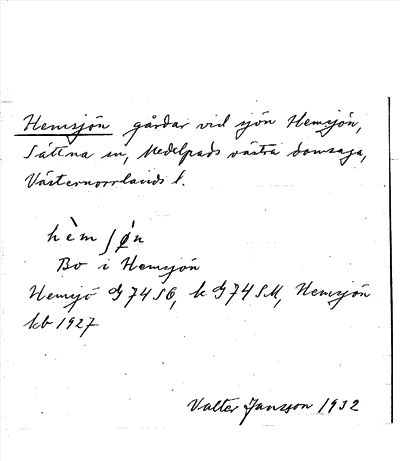 Hemsjön gårdar vid sjön Hemsjön,
Sättna sn, Medelpads västra domsaga,
Västernorrlands l.
hèmʃø̀n
Bo i Hemsjön
Hemsjö G74SO, k G74SM, Hemsjön
kb 1927
Valter Jansson 1932